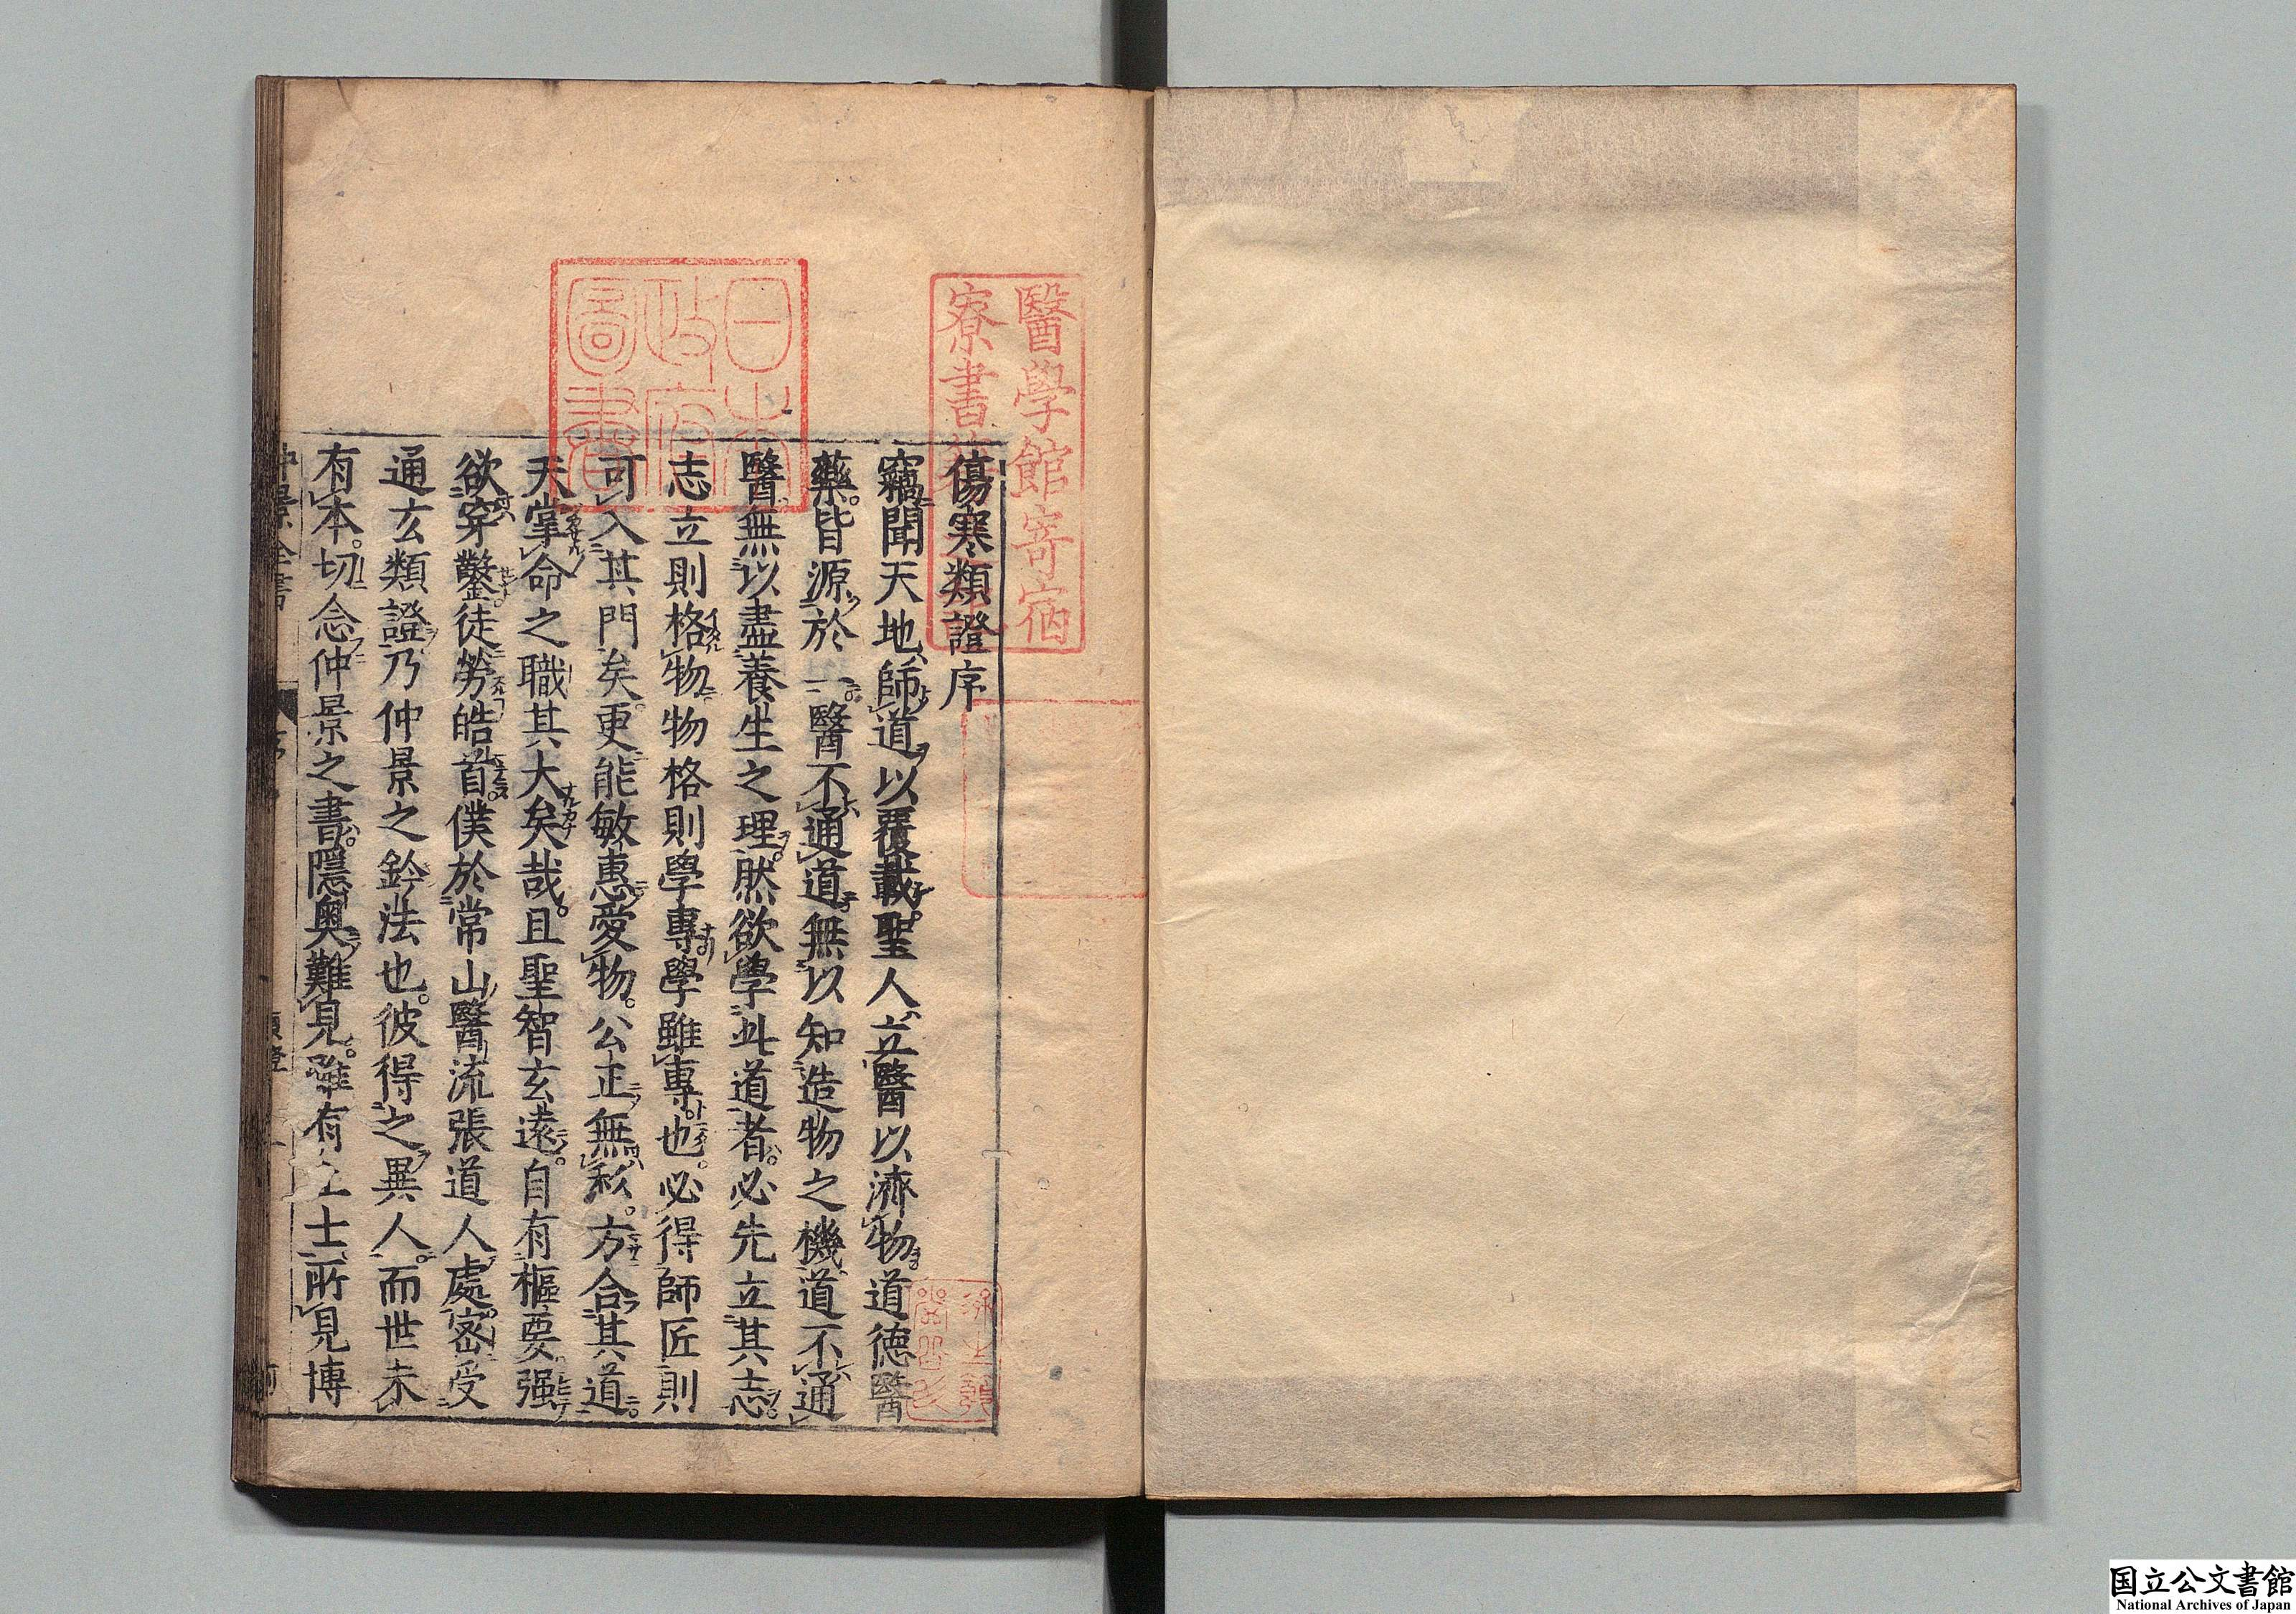 傷寒類證序
竊聞天地師道以覆載聖人立醫以濟物道德醫
藥皆源於一醫不通道無以知造物之機道不通
醫無以盡養生之理然欲學此道者必先立其志
志立則格物物格則學專學雖專也必得師匠則
可入其門矣更能敏惠愛物公正無私方合其道
天掌命之職其大矣哉且聖智玄遠自有樞要强
欲穿鑿徒勞皓首僕於常山醫流張道人處密受
通玄類證乃仲景之鈐法也彼得之異人而世未
有本切念仲景之書隱奧難見雖有上士所見博
醫學館寄宿
寮書
日本
政府
圖書
国立公文書館
National Archives of Japan